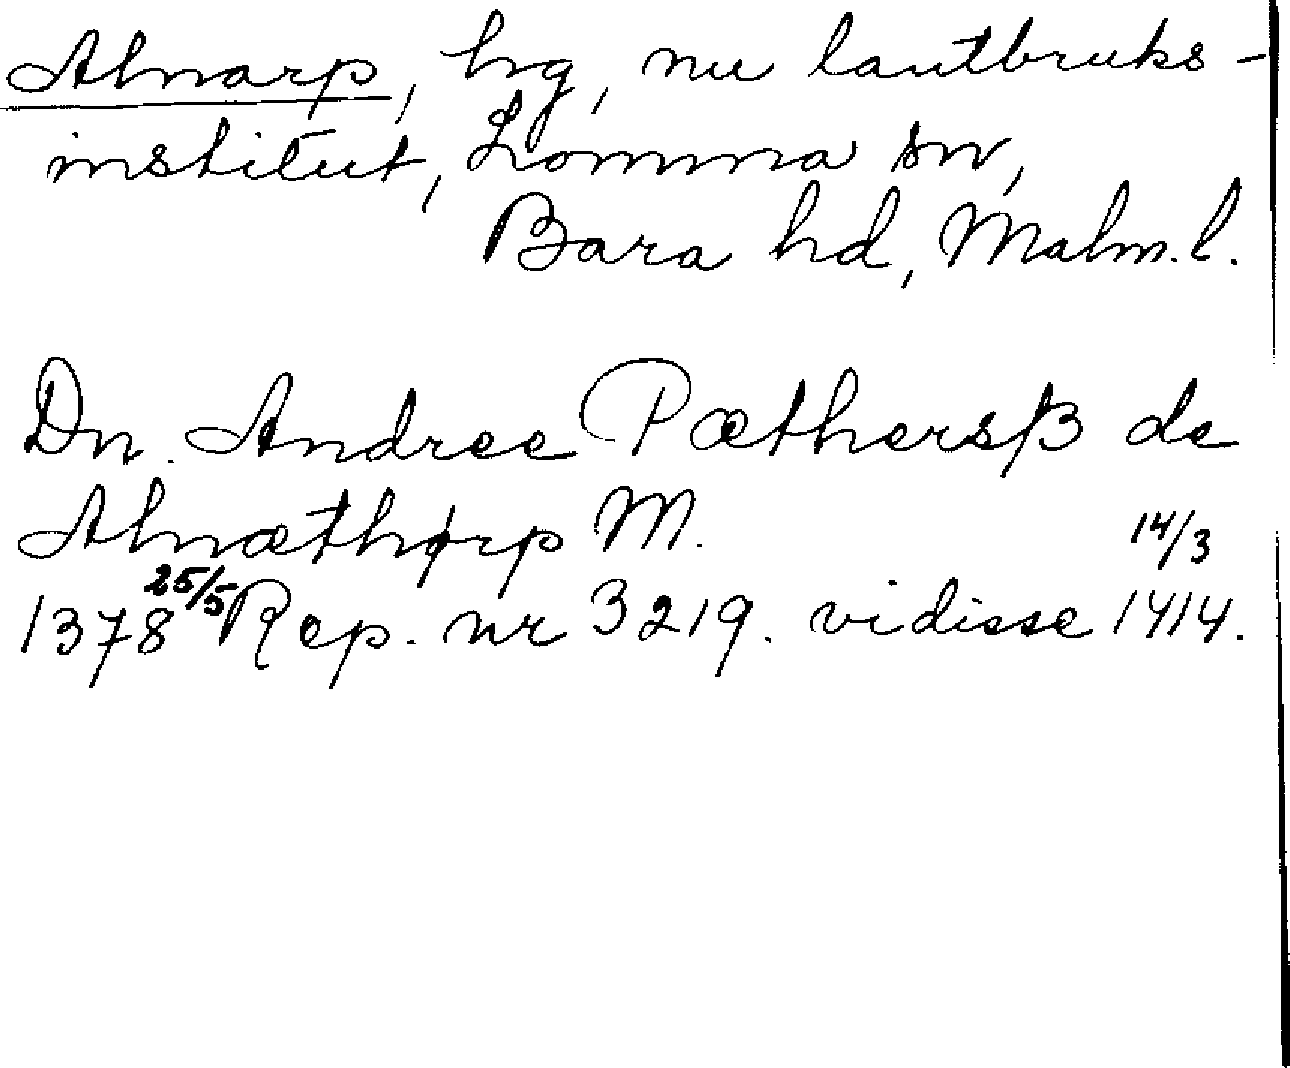 Alnarp, hg, nu lantbruks-
institut, Lomma sn,
Bara hd, Malm. l.
Dn. Andree Pæthersß de
Alnæthørp M.
1378 25/5 Rep. nr 3219. vidisse 14/3 1414.